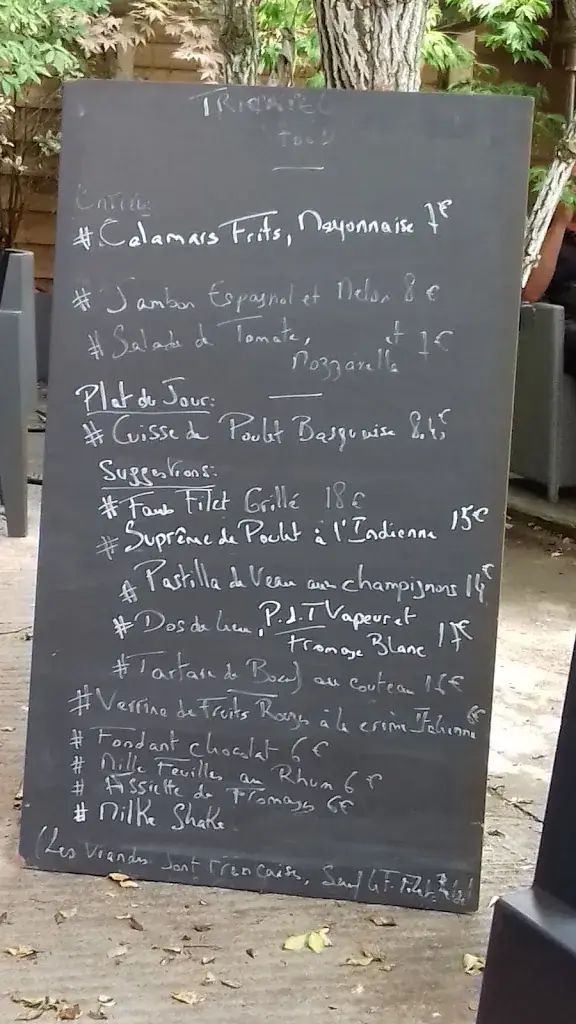 Entrée:
# Calamars Frits, Mayonnaise 7€
# Jambon Espagnol et Melon 8 €
# Salade d Tomate, et 7€
Mozzarella
Plat du Jour:
# Cuisse de Poulet Basquaise
Suggestions:
# Faux Filet Grillé 18€
# Suprême de Poulet à l'Indienne 15€
# Pastilla de Veau aux champignons 14€
# Dos de Lieu, P.d.T Vapeur et
Fromage Blanc 17€
# Tartare de Boeuf au couteau 15€
# Verrine de Fruits Rouges à la crème Italienne 6€
# Fondant chocolat 6 €
# Mille Feuilles au Rhum 6 €
# Assiette de Fromages 6€
# Milk Shake
(Les Viandes sont Française,